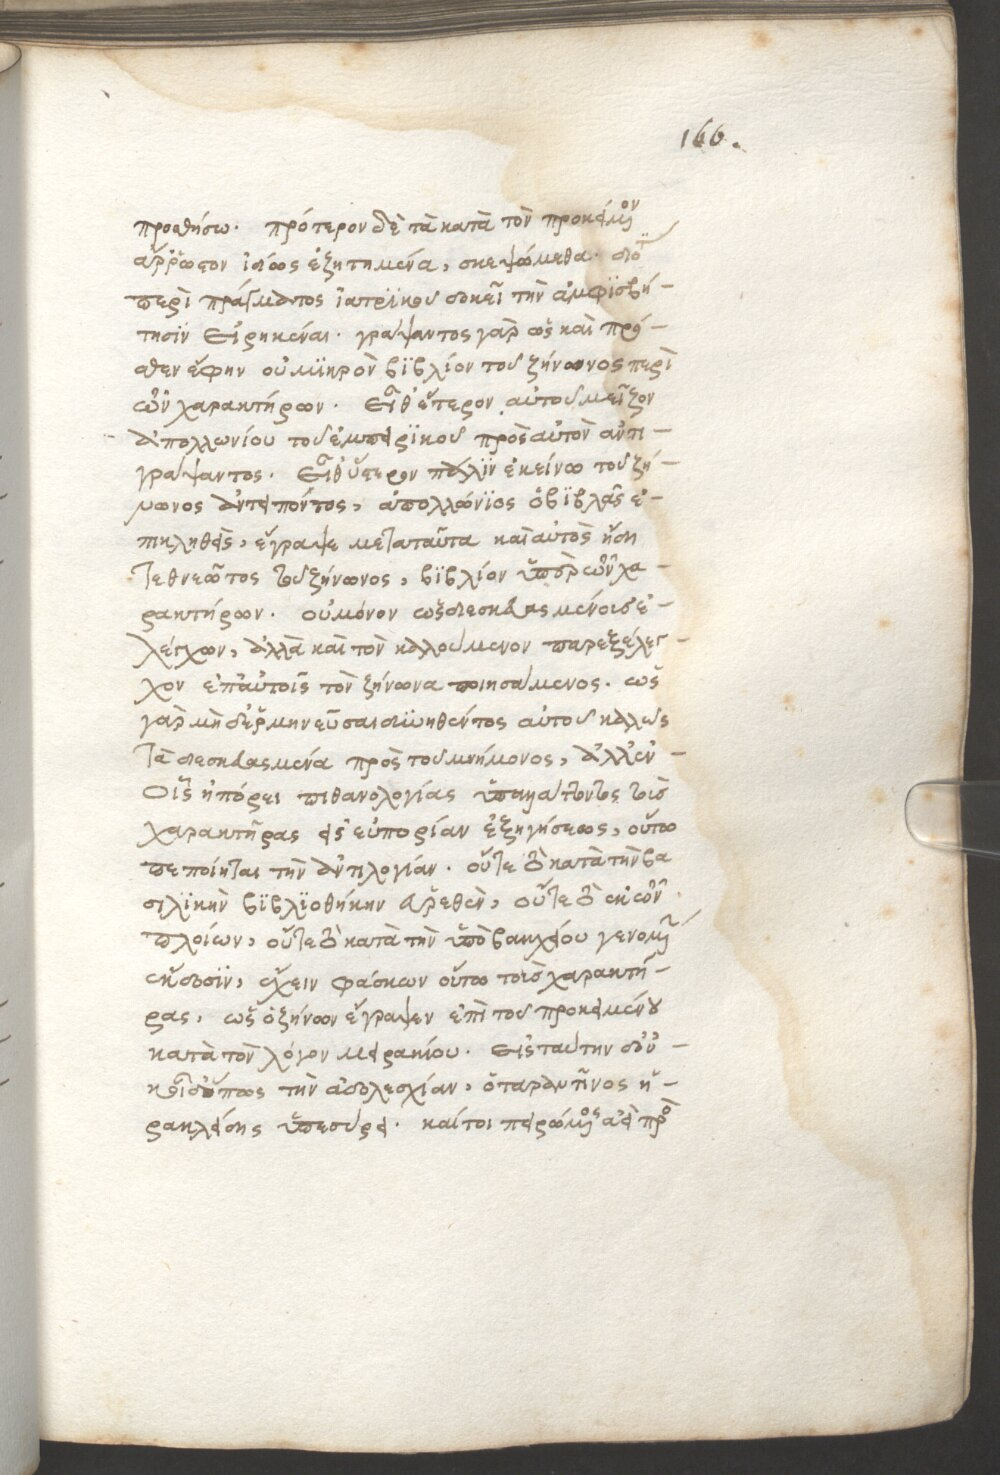 166.
προσθήσω. πρότερον δὲ τὰ κατὰ τὸν προκείμενον
ἄρρωστον ἰδίως ἐζητημένα, σκεψώμεθα.
περὶ πράγματος ἰατρικοῦ δοκεῖ τὴν ἀμφισβή-
τησιν εἰρηκέναι. γράψαντος γὰρ ὡς καὶ πρό-
σθεν ἔφην οὐ μικρὸν βιβλίον τοῦ ζήνωνος περὶ
τῶν χαρακτήρων. εἶθ' ἕτερον αὐτοῦ μεῖζον
ἀπολλωνίου τοῦ ἐμπειρικοῦ πρὸς αὐτὸν ἀντι-
γράψαντος. εἶθ' ὕτερον πάλιν ἐκείνω τοῦ ζή-
νωνος ἀντειπόντος, ἀπολλώνιος ὁ βιβλᾶς ἐ-
πικληθεὶς, ἔγραψε μετὰ ταῦτα καὶ αὐτὸς ἤδη
τεθνεῶτος τοῦ ζήνωνος, βιβλίον ὑπὲρ τῶν χα-
ρακτήρων. οὐ μόνον τῶς διεσκευασμένοις ἐ-
λέγχων, ἀλλὰ καὶ τὸν καλούμενον παρεξέλεγ-
χον ἐπ' αὐτοῖς τὸν ζήνωνα ποιησάμενος. ὡς
γὰρ μὴ διερμηνεῦσαι διϊωηθέντος αὐτοῦ καλῶς
τὰ διεσκευασμένα πρὸς τοῦ μνήμονος, ἀλλ' ἐν
οἷς ἠπόρει πιθανολογίας ὑπαλλάττοντος τοὺς
χαρακτῆρας εἰς εὐπορίαν ἐξηγήσεως, οὕτω
πεποίηται τὴν ἀντιλογίαν. οὔτε τὸ κατὰ τὴν βα
σιλικὴν βιβλιοθήκην εὑρεθὲν, οὔτε τὸ ἐκ τῶν
πλοίων, οὔτε τὸ κατὰ τὴν ὑπὸ βακχείου γενομένην
ἔκδοσιν, ἔχειν φάσκων οὕτω τοὺς χαρακτῆ-
ρας, ὡς ὁ ζήνων ἔγραψεν ἐπὶ τοῦ προκειμένου
κατὰ τὸν λόγον μειρακίου. εἰς ταύτην οὖν
τὴν ἀδολεσχίαν, ὁ ταραντῖνος ἡ-
ρακλείδης ὑπεσύρη. καίτοι πειρώμενος ἀεὶ πρὸ